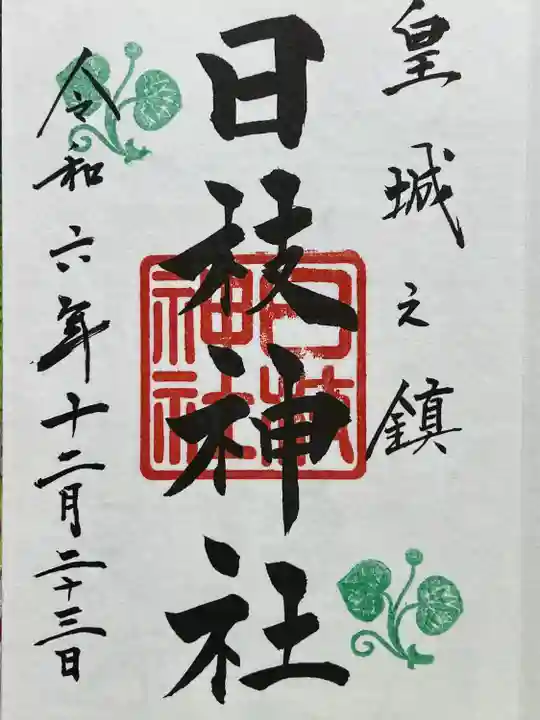 皇城之鎮
日枝神社
日枝神社
令和六年十二月二十三日